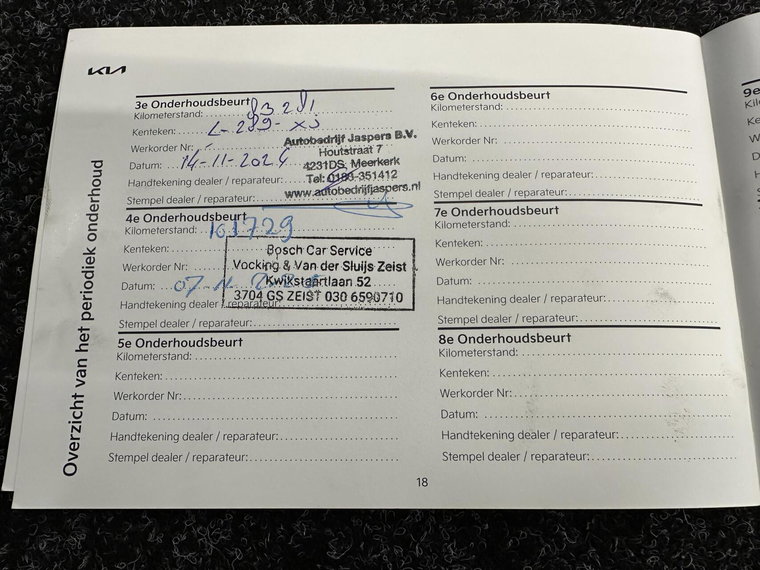 KIA
Overzicht van het periodiek onderhoud
3e Onderhoudsbeurt
Kilometerstand: 83281
Kenteken: L-289-XJ
Werkorder Nr:
Datum: 14-11-2024
Handtekening dealer / reparateur:
Stempel dealer / reparateur:
Autobedrijf Jaspers B.V.
Houtstraat 7
4231DS, Meerkerk
Tel: 0183-351412
www.autobedrijfjaspers.nl
4e Onderhoudsbeurt
Kilometerstand: 101729
Kenteken:
Werkorder Nr:
Datum: 07-11-2025
Handtekening dealer / reparateur:
Stempel dealer / reparateur:
Bosch Car Service
Vocking & Van der Sluijs Zeist
Kwikstaartlaan 52
3704 GS ZEIST 030 6590710
5e Onderhoudsbeurt
Kilometerstand:
Kenteken:
Werkorder Nr:
Datum:
Handtekening dealer / reparateur:
Stempel dealer / reparateur:
6e Onderhoudsbeurt
Kilometerstand:
Kenteken:
Werkorder Nr:
Datum:
Handtekening dealer / reparateur:
Stempel dealer / reparateur:
7e Onderhoudsbeurt
Kilometerstand:
Kenteken:
Werkorder Nr:
Datum:
Handtekening dealer / reparateur:
Stempel dealer / reparateur:
8e Onderhoudsbeurt
Kilometerstand:
Kenteken:
Werkorder Nr:
Datum:
Handtekening dealer / reparateur:
Stempel dealer / reparateur:
18